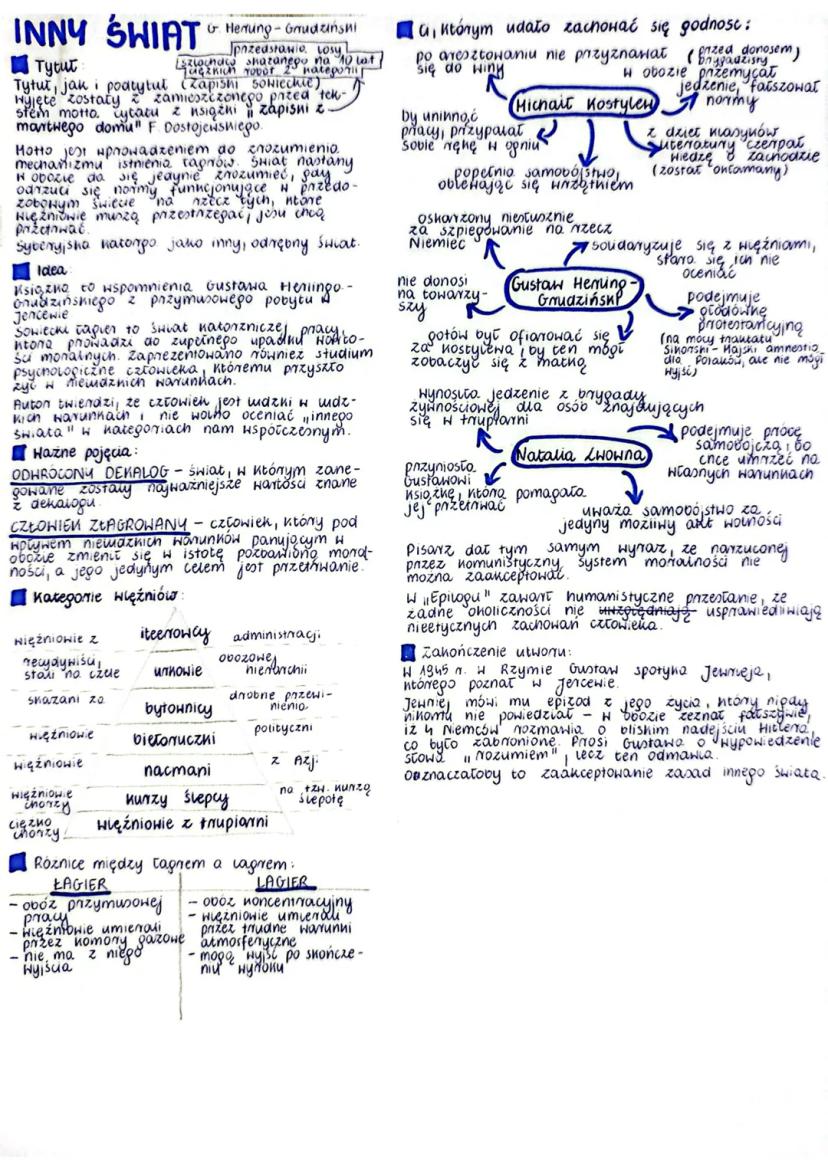 INNY ŚWIAT G. Herling-Grudziński
przedstawia losy
szlachcica skazanego na 10 lat
ciężkich robót 2 kategorii
Tytuł:
Tytuł, jak i podtytuł (Zapiski sowieckie)
wyjęte zostały z zamieszczonego przed tek-
stem motta, cytatu z książki "Zapiski z
martwego domu" F. Dostojewskiego.
Motto jest wprowadzeniem do zrozumienia
mechanizmu istnienia łagrów. Świat nastany
w obozie da się jedynie zrozumieć, gdy
odrzuci się normy funkcjonujące w przedo-
zobowym świecie na rzecz tych, które
więźniowie muszą przestrzegać, jeśli chcą
przetrwać.
Syberyjska katorga jako inny, odrębny świat.
Idea:
Książka to wspomnienia Gustawa Herlinga-
Grudzińskiego z przymusowego pobytu w
Jercewie
Sowiecki łagier to świat katorżniczej pracy,
która prowadzi do zupełnego upadku warto-
ści moralnych. Zaprezentowano również studium
psychologiczne człowieka, któremu przyszło
żyć w nieludzkich warunkach.
Autor twierdzi, że człowiek jest ludzki w ludz-
kich warunkach i nie wolno oceniać „innego
świata" w kategoriach nam współczesnym.
Ważne pojęcia:
ODWRÓCONY DEKALOG – świat, w którym zane-
gowane zostały najważniejsze wartości znane
z dekalogu.
CZŁOWIEK ZŁAGROWANY – człowiek, który pod
wpływem nieludzkich warunków panującym w
obozie zmienił się w istotę pozbawioną moral-
ności, a jego jedynym celem jest przetrwanie.
Kategorie więźniów:
więźniowie z iteerowcy administracji
recydywiści, stali na czele urkowie obozowej hierarchii
skazani za bytownicy drobne przewi-
nienia
więźniowie biełoruczki polityczni
więźniowie nacmani z Azji
więźniowie chorzy kurzy ślepcy na tzw. kurzą ślepotę
ciężko chorzy więźniowie z trupiarni
Różnice między łagrem a lagrem:
ŁAGIER
– obóz przymusowej
pracy
– więźniowie umierali
przez komory gazowe
– nie ma z niego
wyjścia
LAGIER
– obóz koncentracyjny
– więźniowie umierali
przez trudne warunki
atmosferyczne
– mogą wyjść po skończe-
niu wyroku
Ci, którym udało zachować się godność:
po aresztowaniu nie przyznawał
się do winy
(przed donosem)
brygadzisty
w obozie przemycał
jedzenie, fałszował
normy
Michaił Kostylew
by uniknąć
pracy, przypalał
sobie rękę w ogniu
z dzieł klasyków
literatury czerpał
wiedzę o zachodzie
(został okłamany)
popełnia samobójstwo,
oblewając się wrzątkiem
oskarżony niesłusznie
za szpiegowanie na rzecz
Niemiec
solidaryzuje się z więźniami,
stara się ich nie
oceniać
Gustaw Herling-
Grudziński
nie donosi
na towarzy-
szy
podejmuje
głodówkę
protestancyjną
(na mocy traktatu
Sikorski-Majski amnestia
dla Polaków, ale nie mógł
wyjść)
gotów był ofiarować się
za Kostylewa, by ten mógł
zobaczyć się z matką
wynosiła jedzenie z brygady
żywnościowej dla osób znajdujących
się w trupiarni
Natalia Lwowna
podejmuje próbę
samobójczą, bo
chce umrzeć na
własnych warunkach
przyniosła
Gustawowi
książkę, która pomagała
jej przetrwać
uważa samobójstwo za
jedyny możliwy akt wolności
Pisarz dał tym samym wyraz, że narzuconej
przez komunistyczny system moralności nie
można zaakceptować.
W „Epilogu" zawarł humanistyczne przesłanie, że
żadne okoliczności nie uwzględniają usprawiedliwiają
nieetycznych zachowań człowieka.
Zakończenie utworu:
W 1945 r. w Rzymie Gustaw spotyka Jewreja,
którego poznał w Jercewie.
Jewriej mówi mu epizod z jego życia, który nigdy
nikomu nie powiedział – w obozie zeznał fałszywie,
iż 4 Niemców rozmawia o bliskim nadejściu Hitlera,
co było zabronione. Prosi Gustawa o wypowiedzenie
słowa „rozumiem", lecz ten odmawia.
Oznaczałoby to zaakceptowanie zasad innego świata.